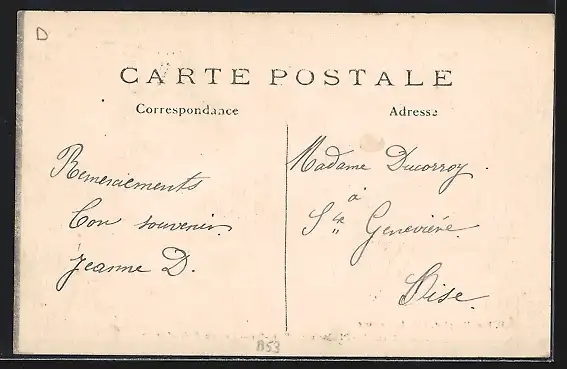 D
CARTE POSTALE
Correspondance
Adresse
Remerciements
Bon souvenir
Jeanne D.
Madame Ducorroy.
à
Ste Geneviève
Oise.
B53